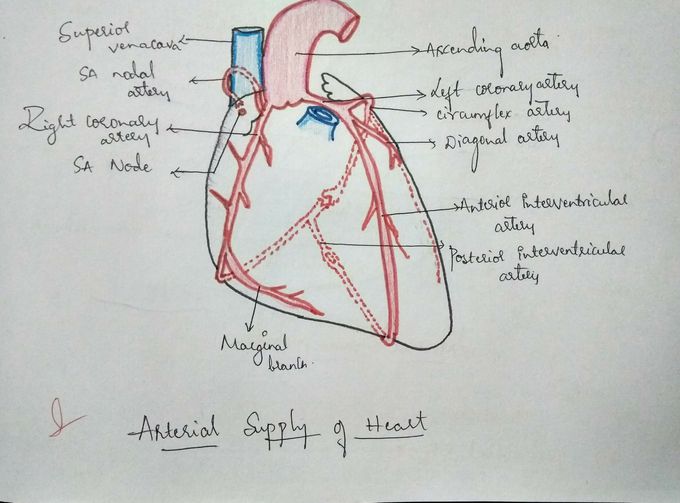 Superior
venacava
SA nodal
artery
Right coronary
artery
SA Node
Ascending aorta
Left coronary artery
circumflex artery
Diagonal artery
Anterior Interventricular
artery
Posterior interventricular
artery
Marginal
branch.
Arterial Supply of Heart